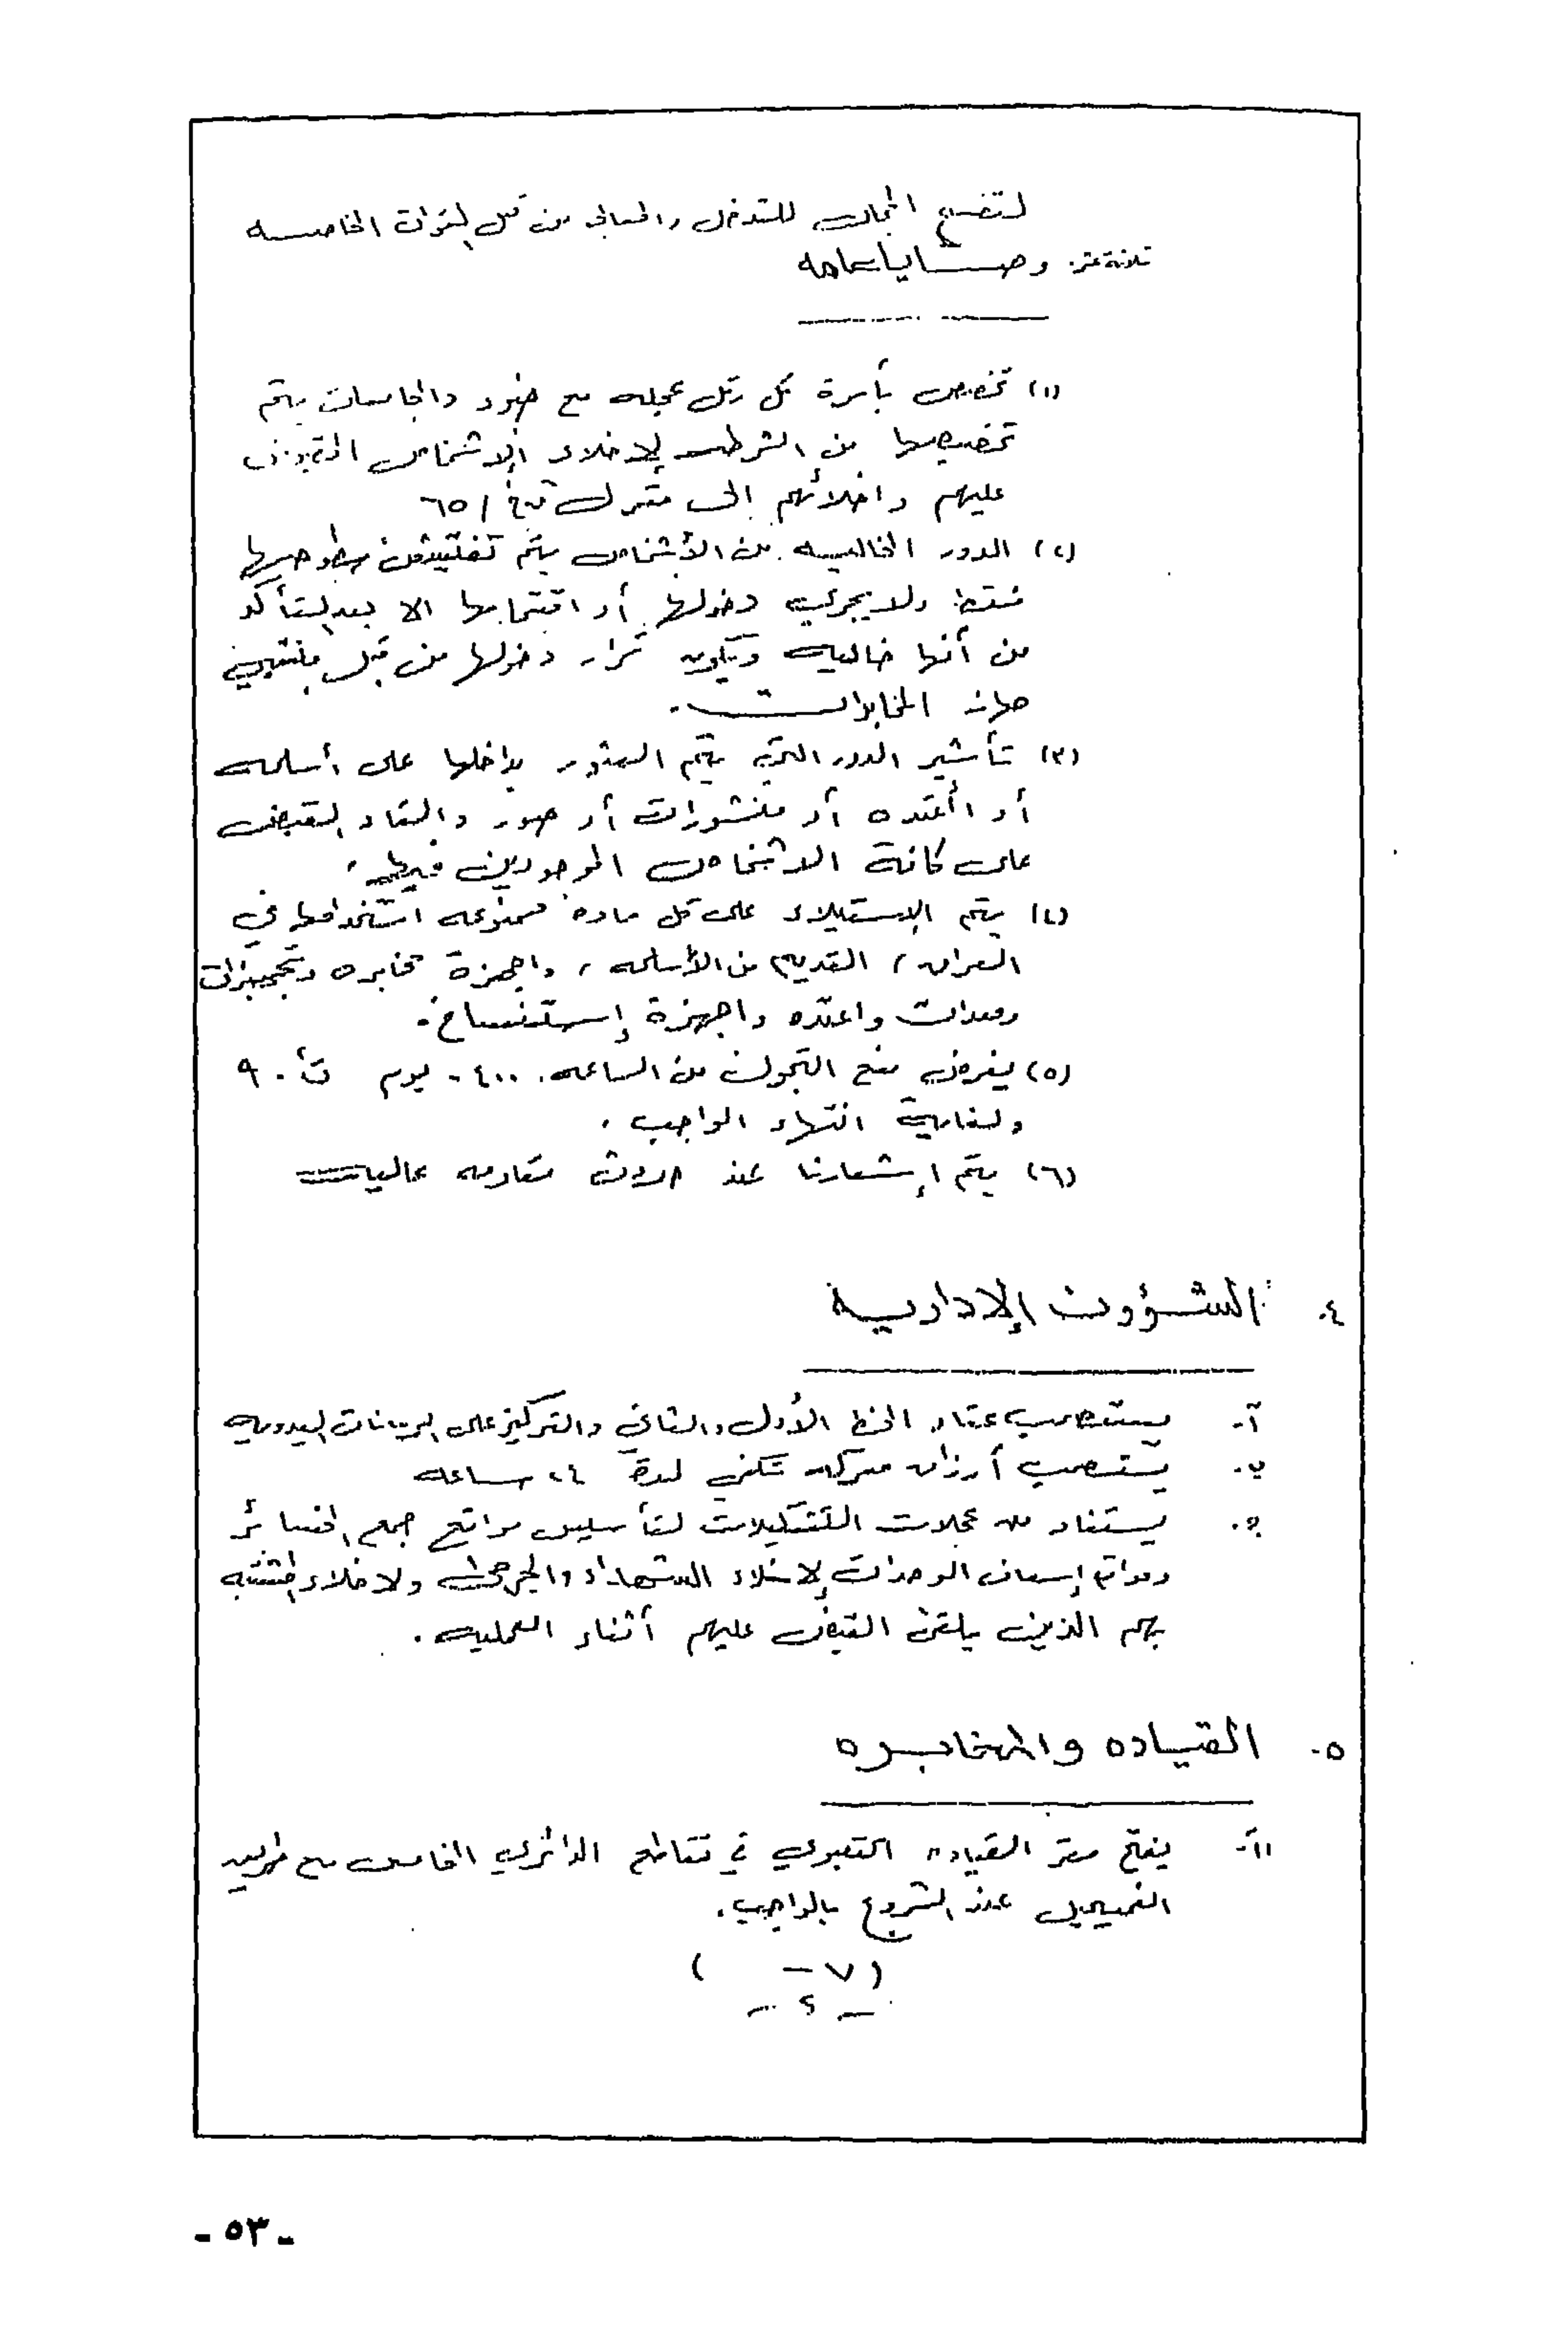 لتفسح المجال للتدخل والمعالجة من قبل القوات الخاصه
ثلاثة عشر. وصايا عامه
(١) تخصص بأمرة كل رتل عجله مع جنود والجاسات يتم
تخصيصها من الشرطه لإخلاء الاشخاص المقبوض
عليهم واخلائهم الى مقر ل ق خ / ٦٥
(٢) الدور الخاليه من الأشخاص يتم تفتيش سطوحها
فقط ولا يجري دخولها أو اقتحامها الا بعد التأكد
من أنها خاليه ويكون قرار دخولها من قبل منتسبي
جهاز المخابرات.
(٣) تأشير الدور التي يتم العثور بداخلها على أسلحه
أو أعتده أو منشورات أو صور والقاء القبض
على كافة الاشخاص الموجودين فيها.
(٤) يتم الإستيلاء على كل ماده ممنوعه استخدامها في
العراق / القديم من الأسلحه ، واجهزة مخابره وتجهيزات
ومعدات واعتده واجهزة إستنساخ.
(٥) يفرض منع التجول من الساعه ٠٤٠٠ يوم ت أ ٩٠
ولغاية انتهاء الواجب .
(٦) يتم إشعارنا عند حدوث مقاومه
٤. الشؤون الإداريه
آ- يستصحب عتاد الخط الأول والثاني والتركيز على الرمانات اليدويه
ب. يستصحب أرزاق معركه تكفي لمدة ٢٤ ساعه
جـ. يستفاد من عجلات التشكيلات لتأسيس مواقع جمع الخسائر
ومواقع إسعاف الوحدات لإخلاء الشهداء والجرحى ولاخلاء المشتبه
بهم الذين يلقى القبض عليهم أثناء العمليه.
٥. القياده والمخابره
آ- يفتح مقر القياده التعبوي في تقاطع الدائري الخامس مع طريق
الفحيحيل عند الشروع بالواجب.
(٧ - )
- ٤ -
- ٥٣ -